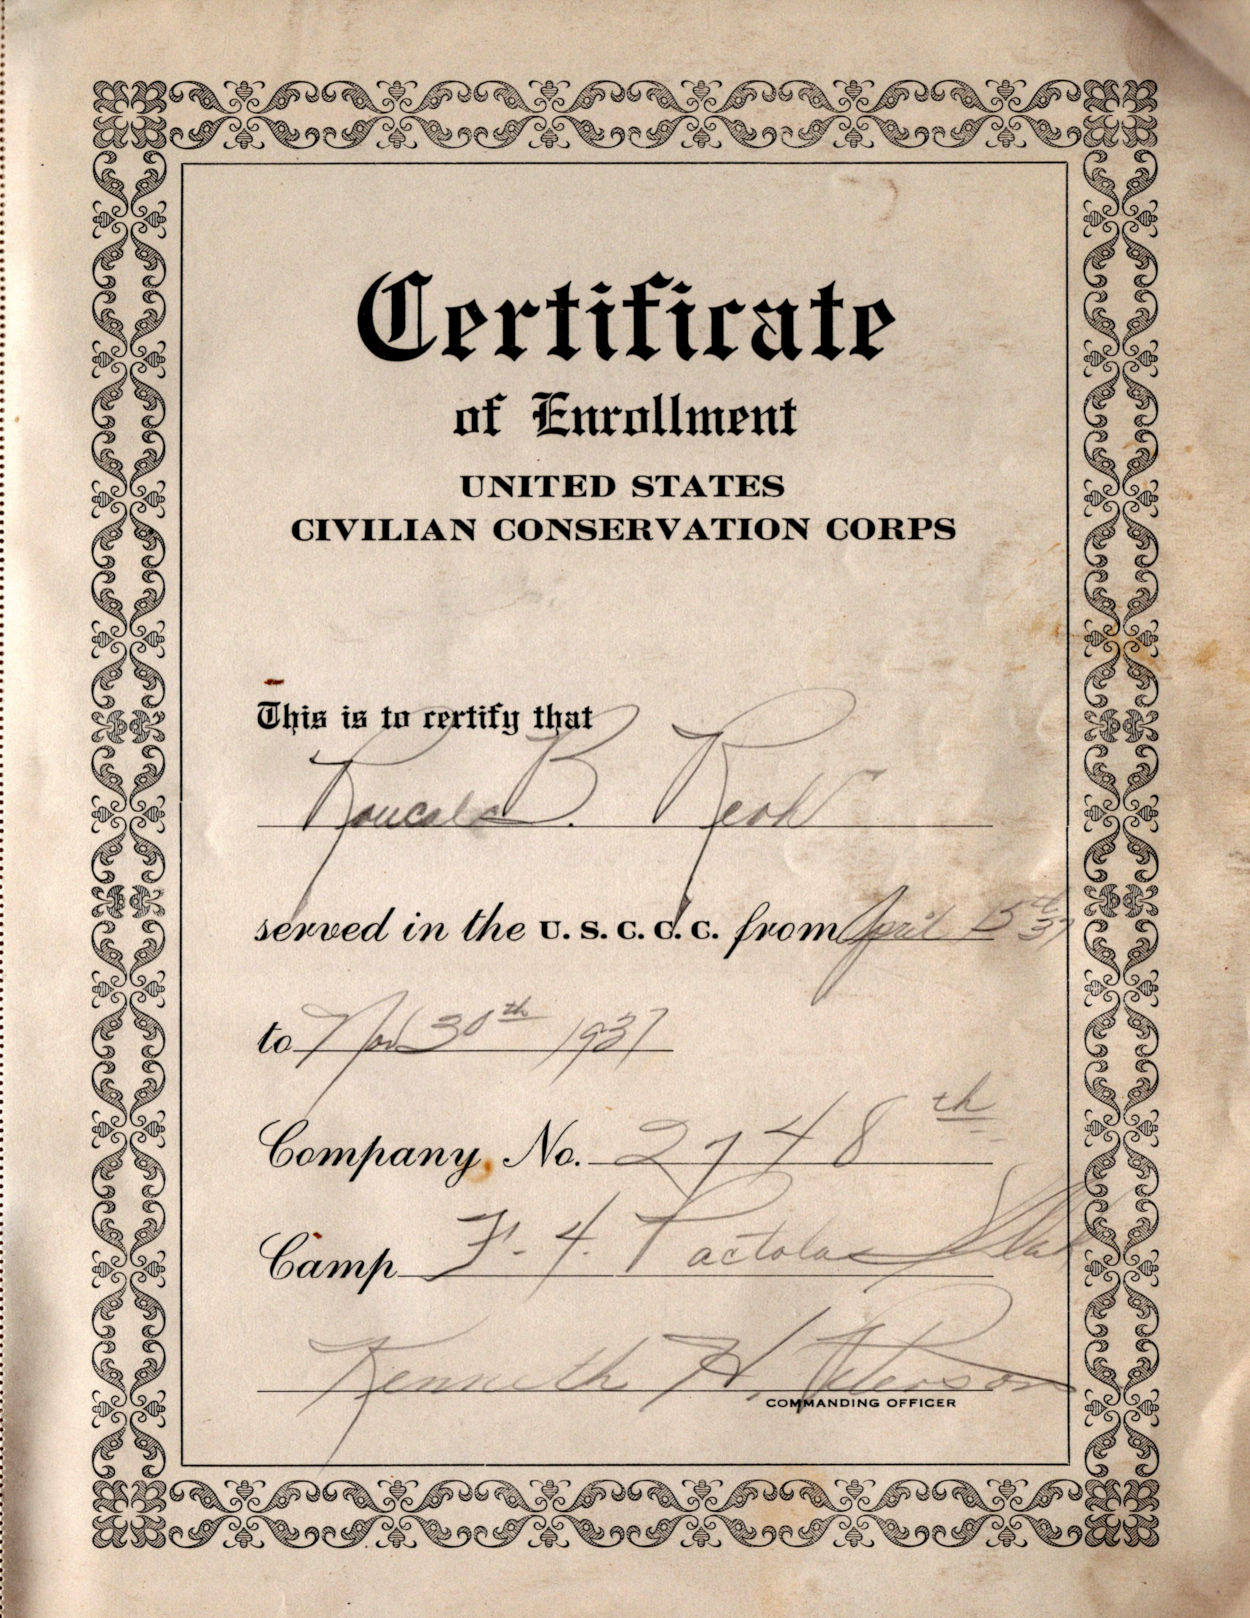 Certificate
of Enrollment
UNITED STATES
CIVILIAN CONSERVATION CORPS
This is to certify that
B.
served in the U. S. C. C. C. from April 15th 37
to Nov 30th 1937
Company No. 2748th
Camp F-4. Pactola
Kenneth H. Peterson
COMMANDING OFFICER